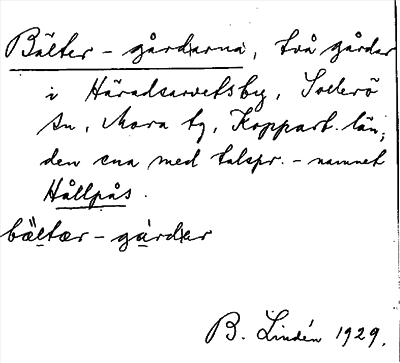 Bälter-gårdarna, två gårdar
i Häradsarvetsby, Sollerö
sn, Mora tg, Kopparb. län;
den ena med talspr.-namnet
Hållpås.
bältær-gárdær
B. Lindén 1929.